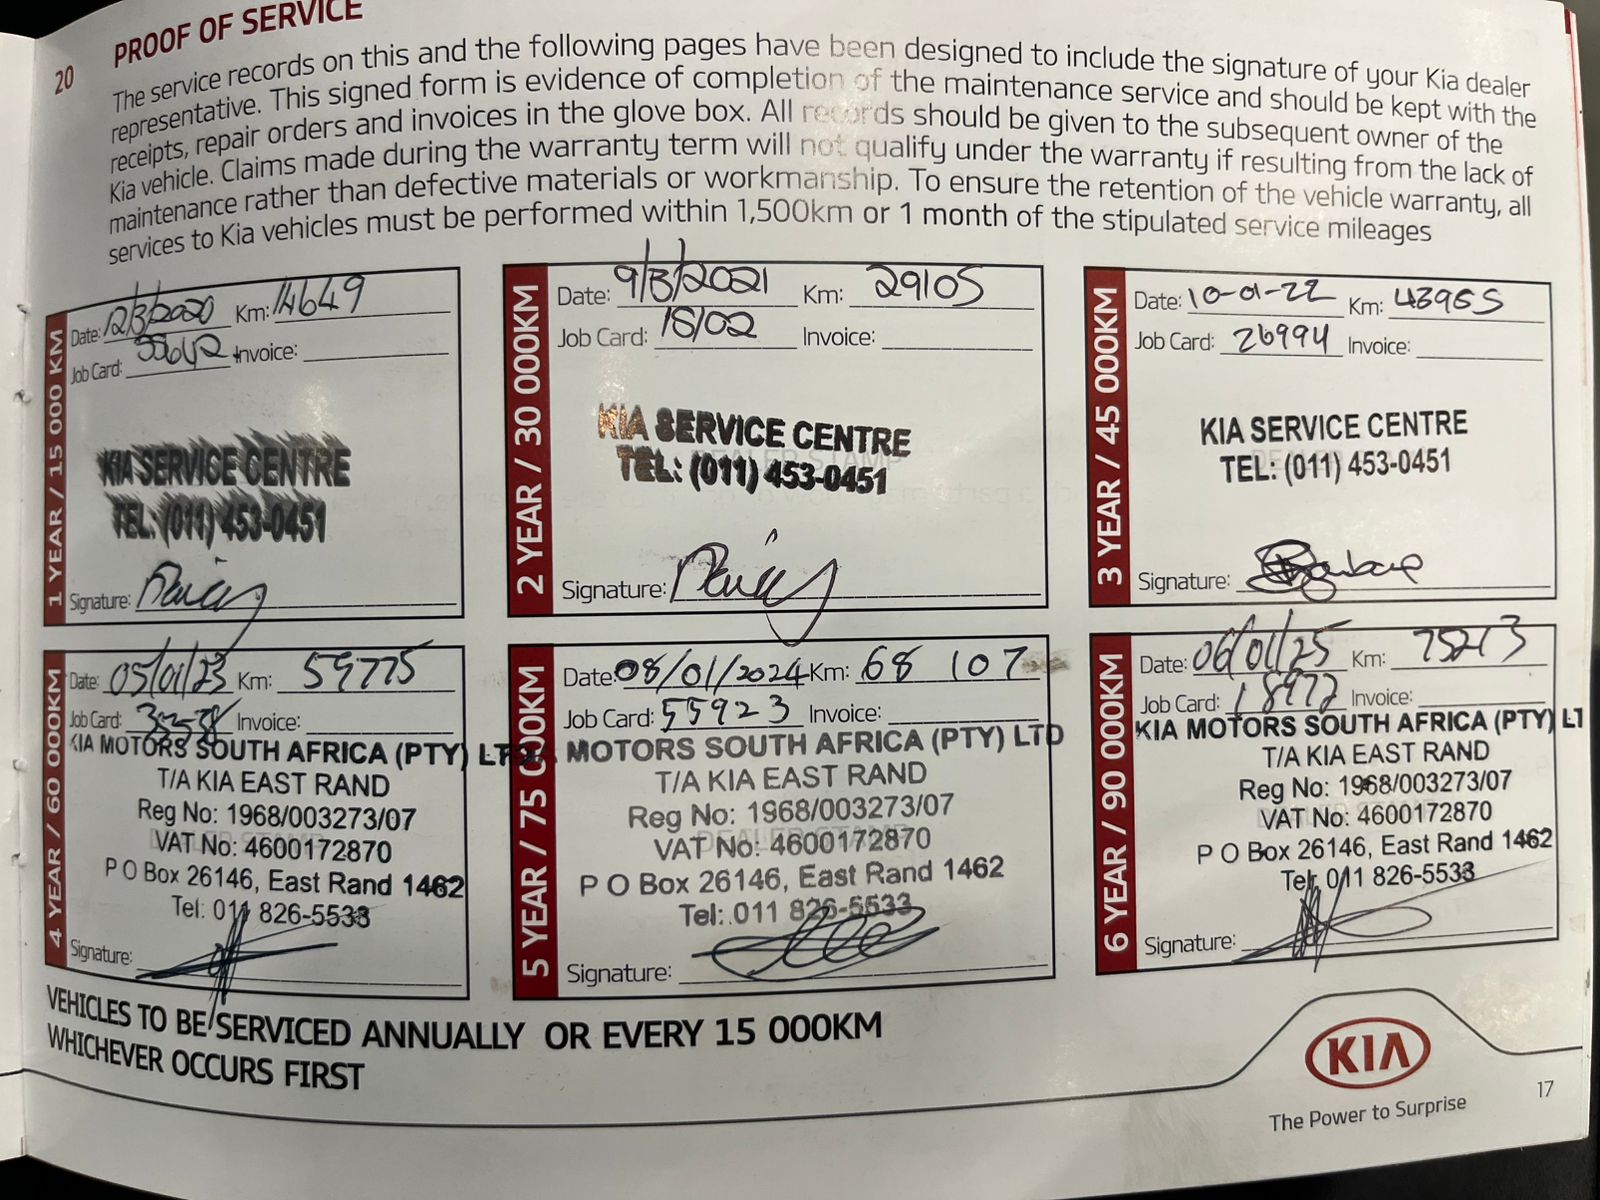 20
PROOF OF SERVICE
The service records on this and the following pages have been designed to include the signature of your Kia dealer
representative. This signed form is evidence of completion of the maintenance service and should be kept with the
receipts, repair orders and invoices in the glove box. All records should be given to the subsequent owner of the
Kia vehicle. Claims made during the warranty term will not qualify under the warranty if resulting from the lack of
maintenance rather than defective materials or workmanship. To ensure the retention of the vehicle warranty, all
services to Kia vehicles must be performed within 1,500km or 1 month of the stipulated service mileages
1 YEAR / 15 000 KM
Date: 12/3/2020 Km: 14649
Job Card: Invoice:
KIA SERVICE CENTRE
TEL: (011) 453-0451
Signature:
2 YEAR / 30 000KM
Date: 9/3/2021 Km: 29105
Job Card: 15/02 Invoice:
KIA SERVICE CENTRE
TEL: (011) 453-0451
Signature:
3 YEAR / 45 000KM
Date: 10-01-22 Km: 43965
Job Card: 26994 Invoice:
KIA SERVICE CENTRE
TEL: (011) 453-0451
Signature:
4 YEAR / 60 000KM
Date: 05/01/23 Km: 59775
Job Card: Invoice:
KIA MOTORS SOUTH AFRICA (PTY) LTD
T/A KIA EAST RAND
Reg No: 1968/003273/07
VAT No: 4600172870
P O Box 26146, East Rand 1462
Tel: 011 826-5533
Signature:
5 YEAR / 75 000KM
Date: 08/01/2024 Km: 68 107
Job Card: 55923 Invoice:
MOTORS SOUTH AFRICA (PTY) LTD
T/A KIA EAST RAND
Reg No: 1968/003273/07
DEALER STAMP
VAT No: 4600172870
P O Box 26146, East Rand 1462
Tel: 011 826-5533
Signature:
6 YEAR / 90 000KM
Date: 06/01/25 Km: 75213
Job Card: 18972 Invoice:
KIA MOTORS SOUTH AFRICA (PTY) LT
T/A KIA EAST RAND
Reg No: 1968/003273/07
VAT No: 4600172870
P O Box 26146, East Rand 1462
Tel: 011 826-5533
Signature:
VEHICLES TO BE SERVICED ANNUALLY OR EVERY 15 000KM
WHICHEVER OCCURS FIRST
KIA
The Power to Surprise
17